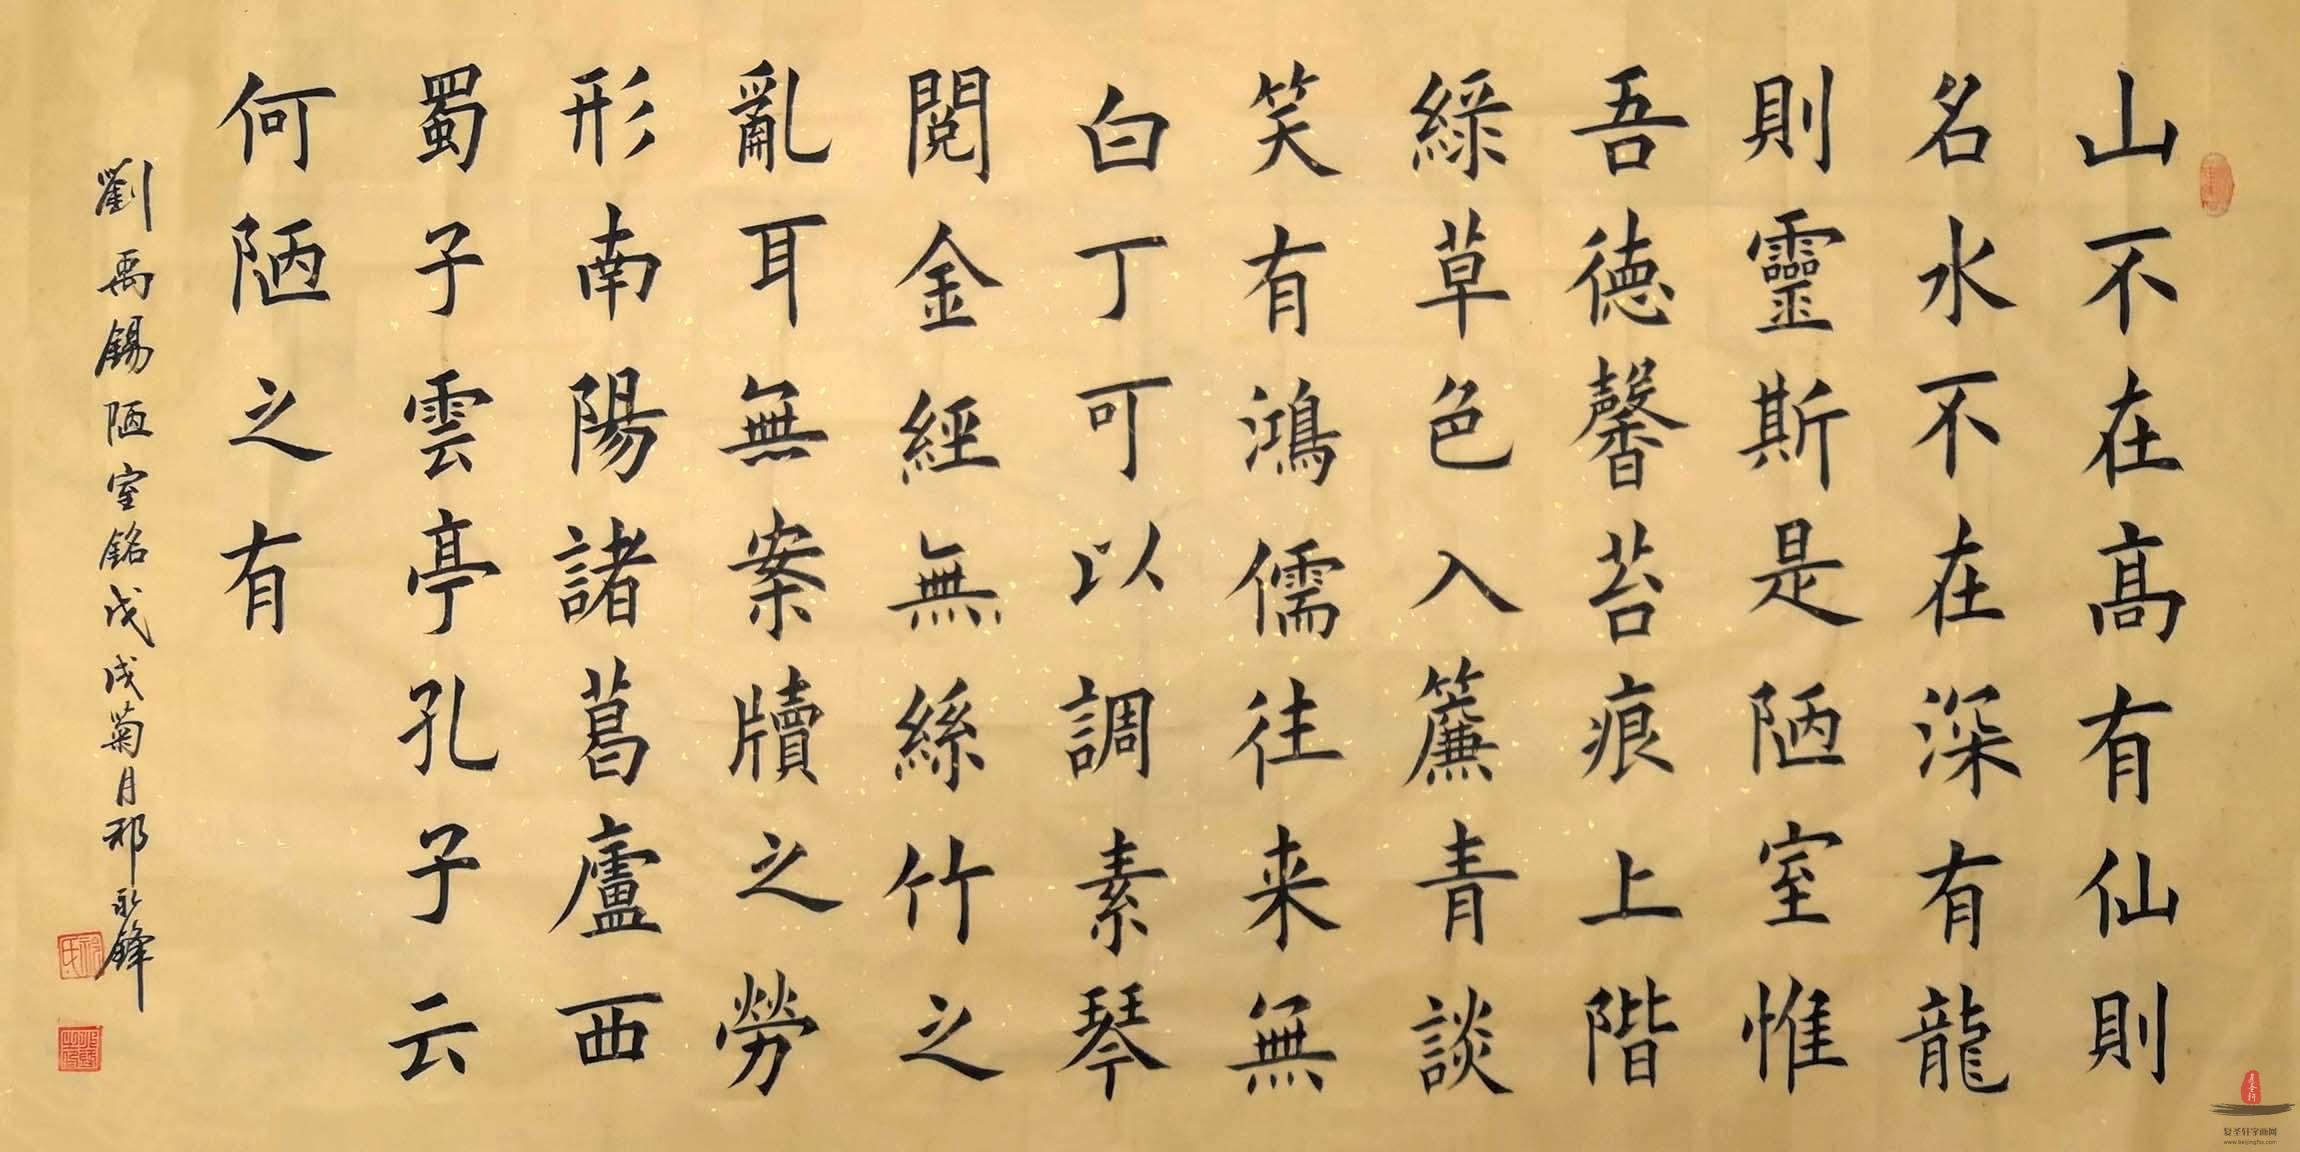 山不在高有仙則
名水不在深有龍
則靈斯是陋室惟
吾德馨苔痕上階
綠草色入簾青談
笑有鴻儒往来無
白丁可以調素琴
閱金經無絲竹之
亂耳無案牘之勞
形南陽諸葛廬西
蜀子雲亭孔子云
何陋之有
劉禹錫陋室銘戊戌菊月祁永鋒
复圣轩字画网